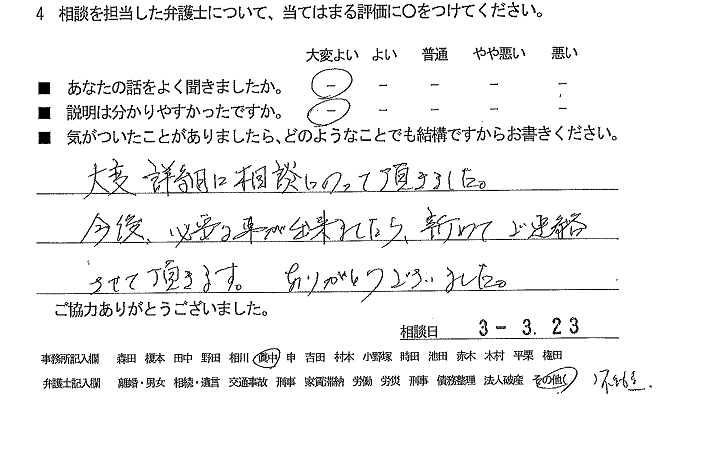 4 相談を担当した弁護士について、当てはまる評価に○をつけてください。
大変よい よい 普通 やや悪い 悪い
■ あなたの話をよく聞きましたか。 － － － － －
■ 説明は分かりやすかったですか。 － － － － －
■ 気がついたことがありましたら、どのようなことでも結構ですからお書きください。
大変 詳細に相談にのって頂きました。
今後、必要な事が出来ましたら、新めてご連絡
させて頂きます。 ありがとうございました。
ご協力ありがとうございました。
相談日 3-3.23
事務所記入欄 森田 榎本 田中 野田 相川 田中 申 吉田 村木 小野塚 時田 池田 赤木 木村 平栗 権田
弁護士記入欄 離婚・男女 相続・遺言 交通事故 刑事 家賃滞納 労働 労災 刑事 債務整理 法人破産 その他(